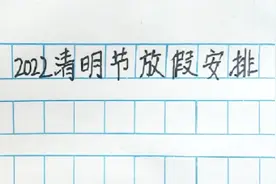 2022清明节放假安排